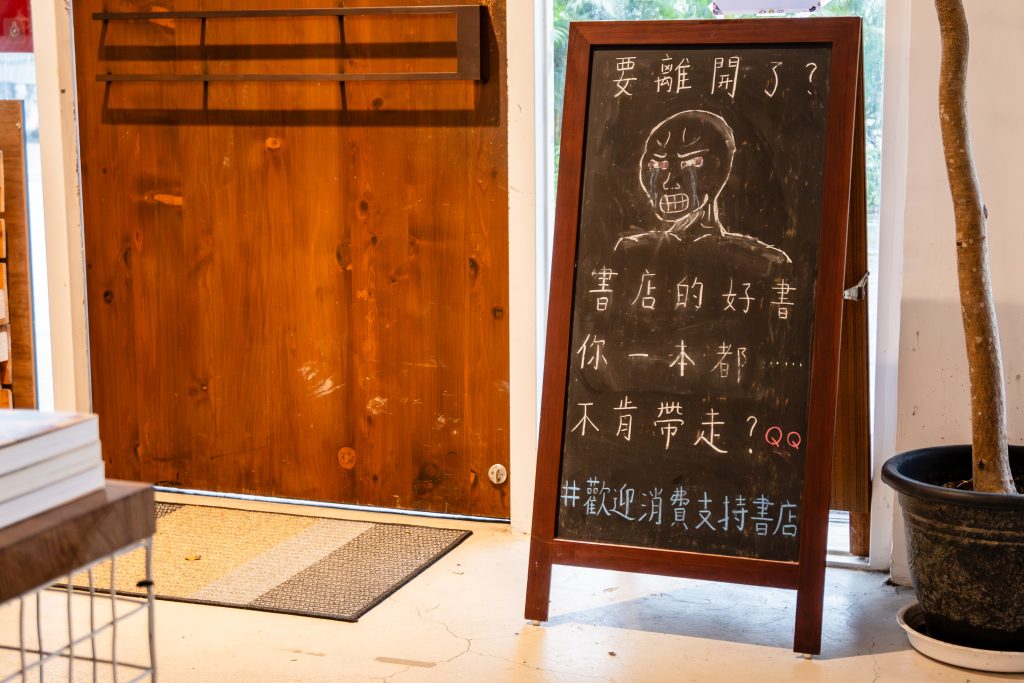 要離開了？
書店的好書
你一本都……
不肯帶走？QQ
#歡迎消費支持書店